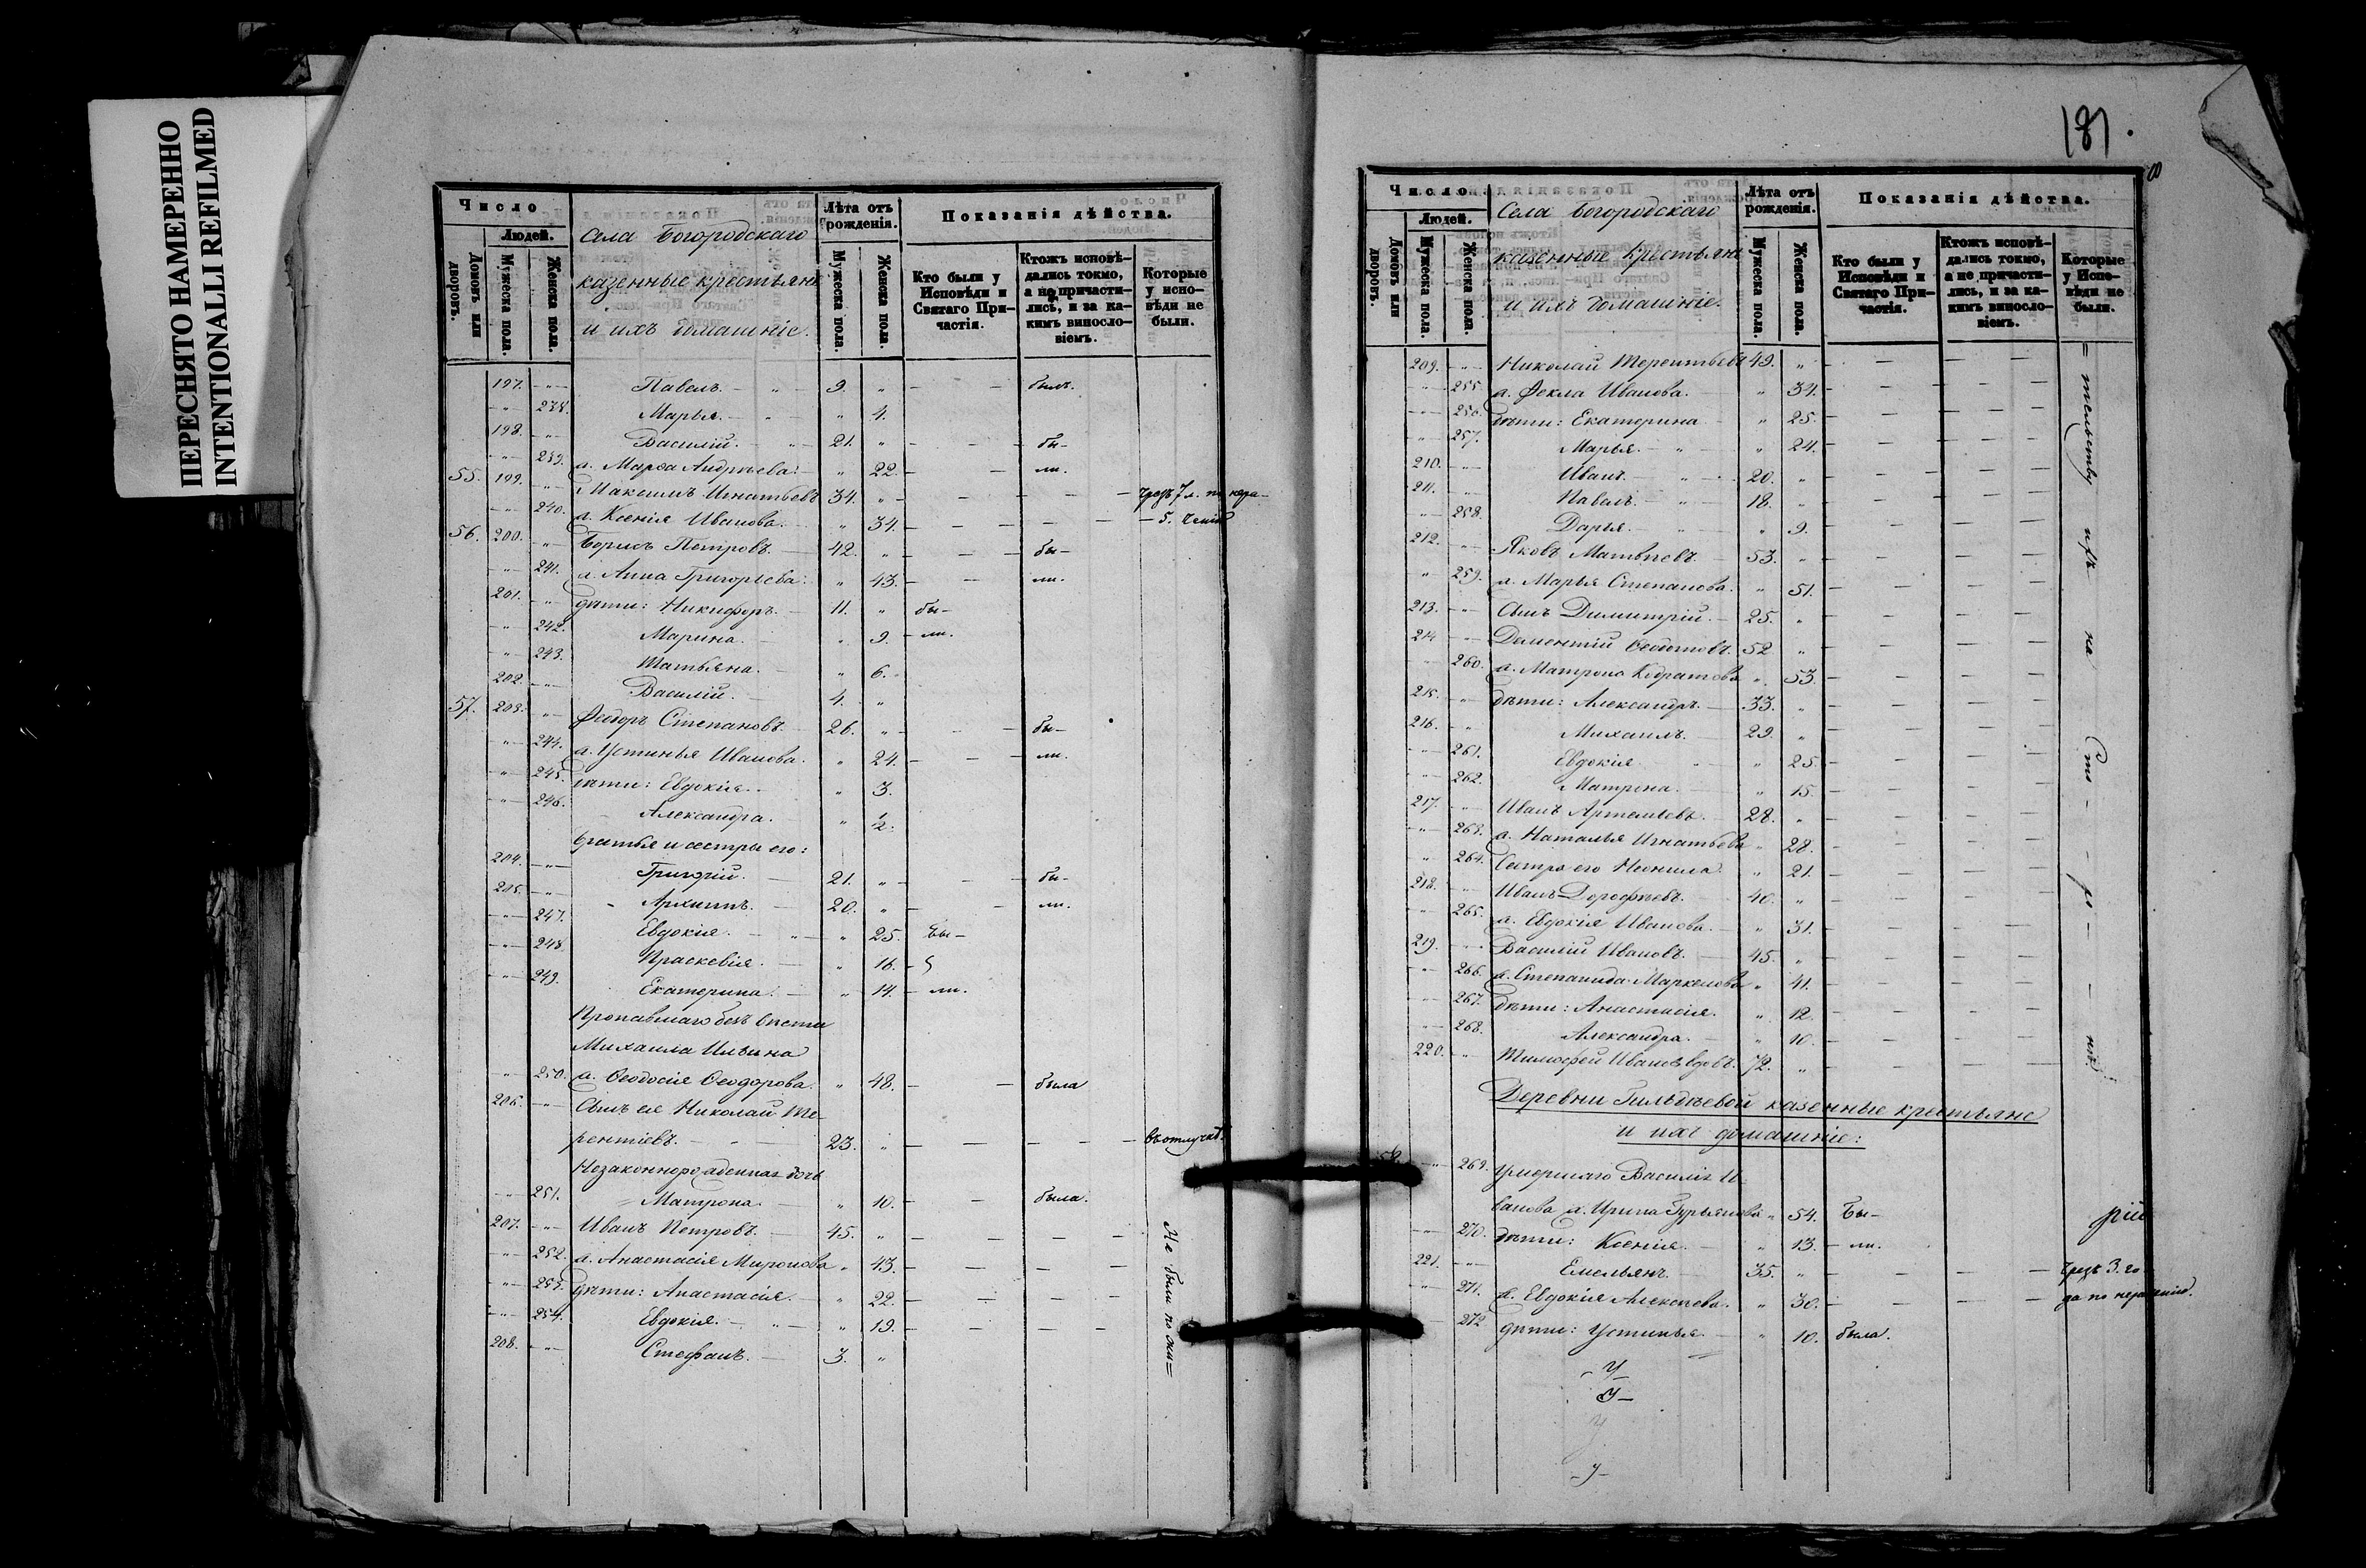 ПЕРЕСНЯТО НАМЕРЕННО
INTENTIONALLI REFILMED
Число
Людей.
Домовъ или дворовъ.
Мужеска пола.
Женска пола.
Села Богородскаго
казенные крестьяне
и ихъ домашніе.
Лѣта отъ рожденія.
Мужеска пола.
Женска пола.
Показанія дѣйства.
Кто были у Исповѣди и Святаго При-частія.
Ктожъ исповѣ-дались токмо, а не причасти-лись, и за ка-кимъ винosло-віемъ.
Которые у испо-вѣди не были.
197. Павелъ. 9. былъ.
238. Марья. 4.
198. Василій. 21. бы-
239. ж. Марѳа Андреева. 22. ли.
55. 199. Максимъ Игнатьевъ 34. чрезъ 7 л. по нера-
240. ж. Ксенія Иванова. 34. ченію
56. 200. Борисъ Петровъ. 42. бы-
241. ж. Анна Григорьева. 43. ли.
201. дѣти: Никифоръ. 11. бы-
242. Марина. 9. ли.
243. Татьяна. 6.
202. Василій. 4.
57. 203. Ѳедоръ Степановъ. 26. бы-
244. ж. Устинья Иванова. 24. ли.
245. дѣти: Евдокія. 3.
246. Александра. 1/2.
братья и сестры его:
204. Григорій. 21. бы-
205. Архипъ. 20. ли.
247. Евдокія. 25. Бы-
248. Праскевія. 16.
249. Екатерина. 14. ли.
Пропавшаго безъ вѣсти
Михаила Ильина
250. ж. Ѳеодосія Ѳеодорова. 48. была
206. Сынъ ея Николай Те-
рентіевъ. 23. въ отлучкѣ.
Незаконнорожденная дочь
251. Матрона. 10. была.
207. Иванъ Петровъ. 45.
252. ж. Анастасія Миронова 43.
253. дѣти: Анастасія. 22.
254. Евдокія. 19.
208. Стефанъ. 3.
Не были по оли=
181.
Число
Людей.
Домовъ или дворовъ.
Мужеска пола.
Женска пола.
Села Богородскаго
казенные крестьяне
и ихъ домашніе.
Лѣта отъ рожденія.
Мужеска пола.
Женска пола.
Показанія дѣйства.
Кто были у Исповѣди и Святаго При-частія.
Ктожъ исповѣ-дались токмо, а не причасти-лись, и за ка-кимъ винosло-віемъ.
Которые у Испо-вѣди не были.
209. Николай Терентьевъ 49.
255. ж. Ѳекла Иванова. 34.
256. дѣти: Екатерина 25.
257. Марья. 24.
210. Иванъ. 20.
211. Павелъ. 18.
258. Дарья. 9.
212. Яковъ Матвѣевъ. 53.
259. ж. Марья Степанова. 51.
213. Сынъ Димитрій. 25.
214 Дементій Ѳедотовъ. 52
260. ж. Матрона Кодратова 53.
215. дѣти: Александръ. 33.
216. Михаилъ. 29.
261. Евдокія 25.
262. Матрона. 15.
217. Иванъ Артемьевъ. 28.
263. ж. Наталья Игнатьева 28.
264. Сестра его Неонила 21.
218. Иванъ Дорофѣевъ. 40.
265. ж. Евдокія Иванова. 31.
219. Василій Ивановъ. 45.
266. ж. Степанида Маркелова 41.
267. дѣти: Анастасія. 12.
268. Александра. 10.
220. Тимофей Ивановъ вдовъ. 72.
=тельству ихъ на Сто-ро-нѣ.
Деревни Гильдѣевой казенные крестьяне
и ихъ домашніе:
58. 269. Умершаго Василія И-
ванова ж. Ирина Гурьянова 54. Бы-
270. дѣти: Ксенія. 13. ли.
221. Емельянъ. 35. чрезъ 3. го-
271. ж. Евдокія Алексѣева. 30. да по нераченію.
272 дѣти: Устинья. 10. была.